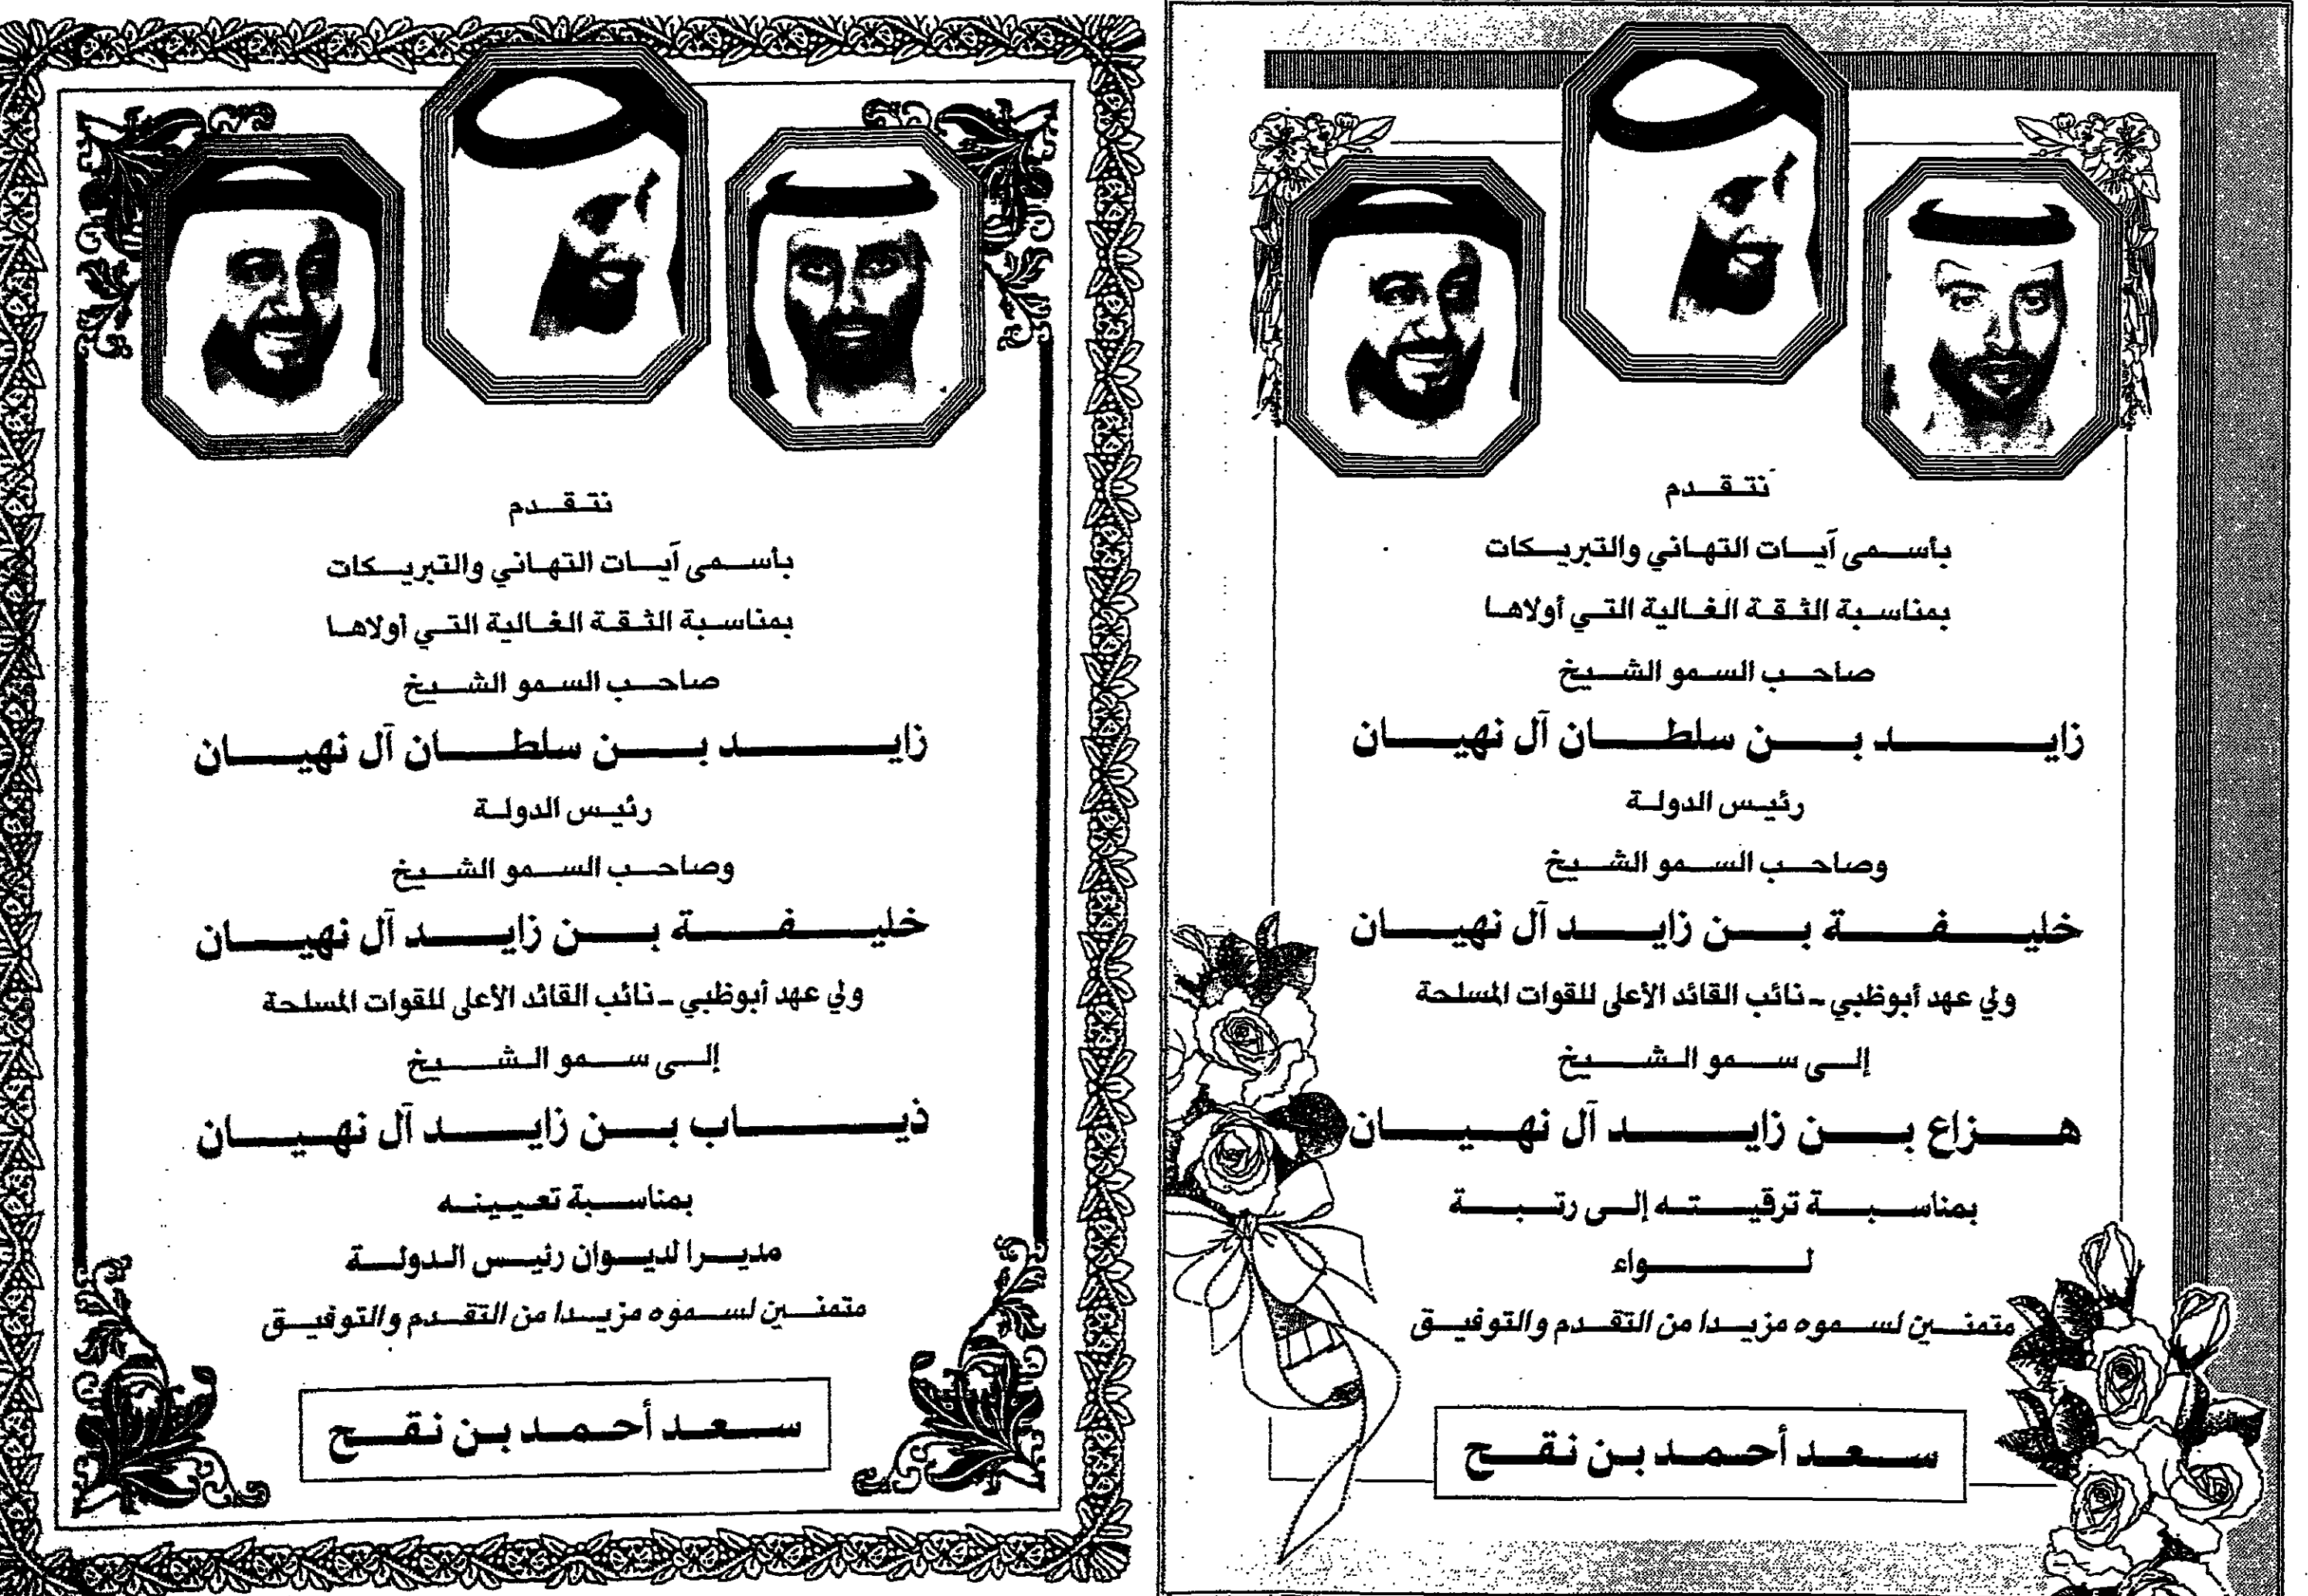 نتقدم
بأسمى آيات التهاني والتبريكات
بمناسبة الثقة الغالية التي أولاها
صاحب السمو الشيخ
زايد بن سلطان آل نهيان
رئيس الدولة
وصاحب السمو الشيخ
خليفة بن زايد آل نهيان
ولي عهد أبوظبي - نائب القائد الأعلى للقوات المسلحة
إلى سمو الشيخ
هزاع بن زايد آل نهيان
بمناسبة ترقيته إلى رتبة
لواء
متمنين لسموه مزيدا من التقدم والتوفيق
سعد أحمد بن نقح
نتقدم
بأسمى آيات التهاني والتبريكات
بمناسبة الثقة الغالية التي أولاها
صاحب السمو الشيخ
زايد بن سلطان آل نهيان
رئيس الدولة
وصاحب السمو الشيخ
خليفة بن زايد آل نهيان
ولي عهد أبوظبي - نائب القائد الأعلى للقوات المسلحة
إلى سمو الشيخ
ذياب بن زايد آل نهيان
بمناسبة تعيينه
مديرا لديوان رئيس الدولة
متمنين لسموه مزيدا من التقدم والتوفيق
سعد أحمد بن نقح